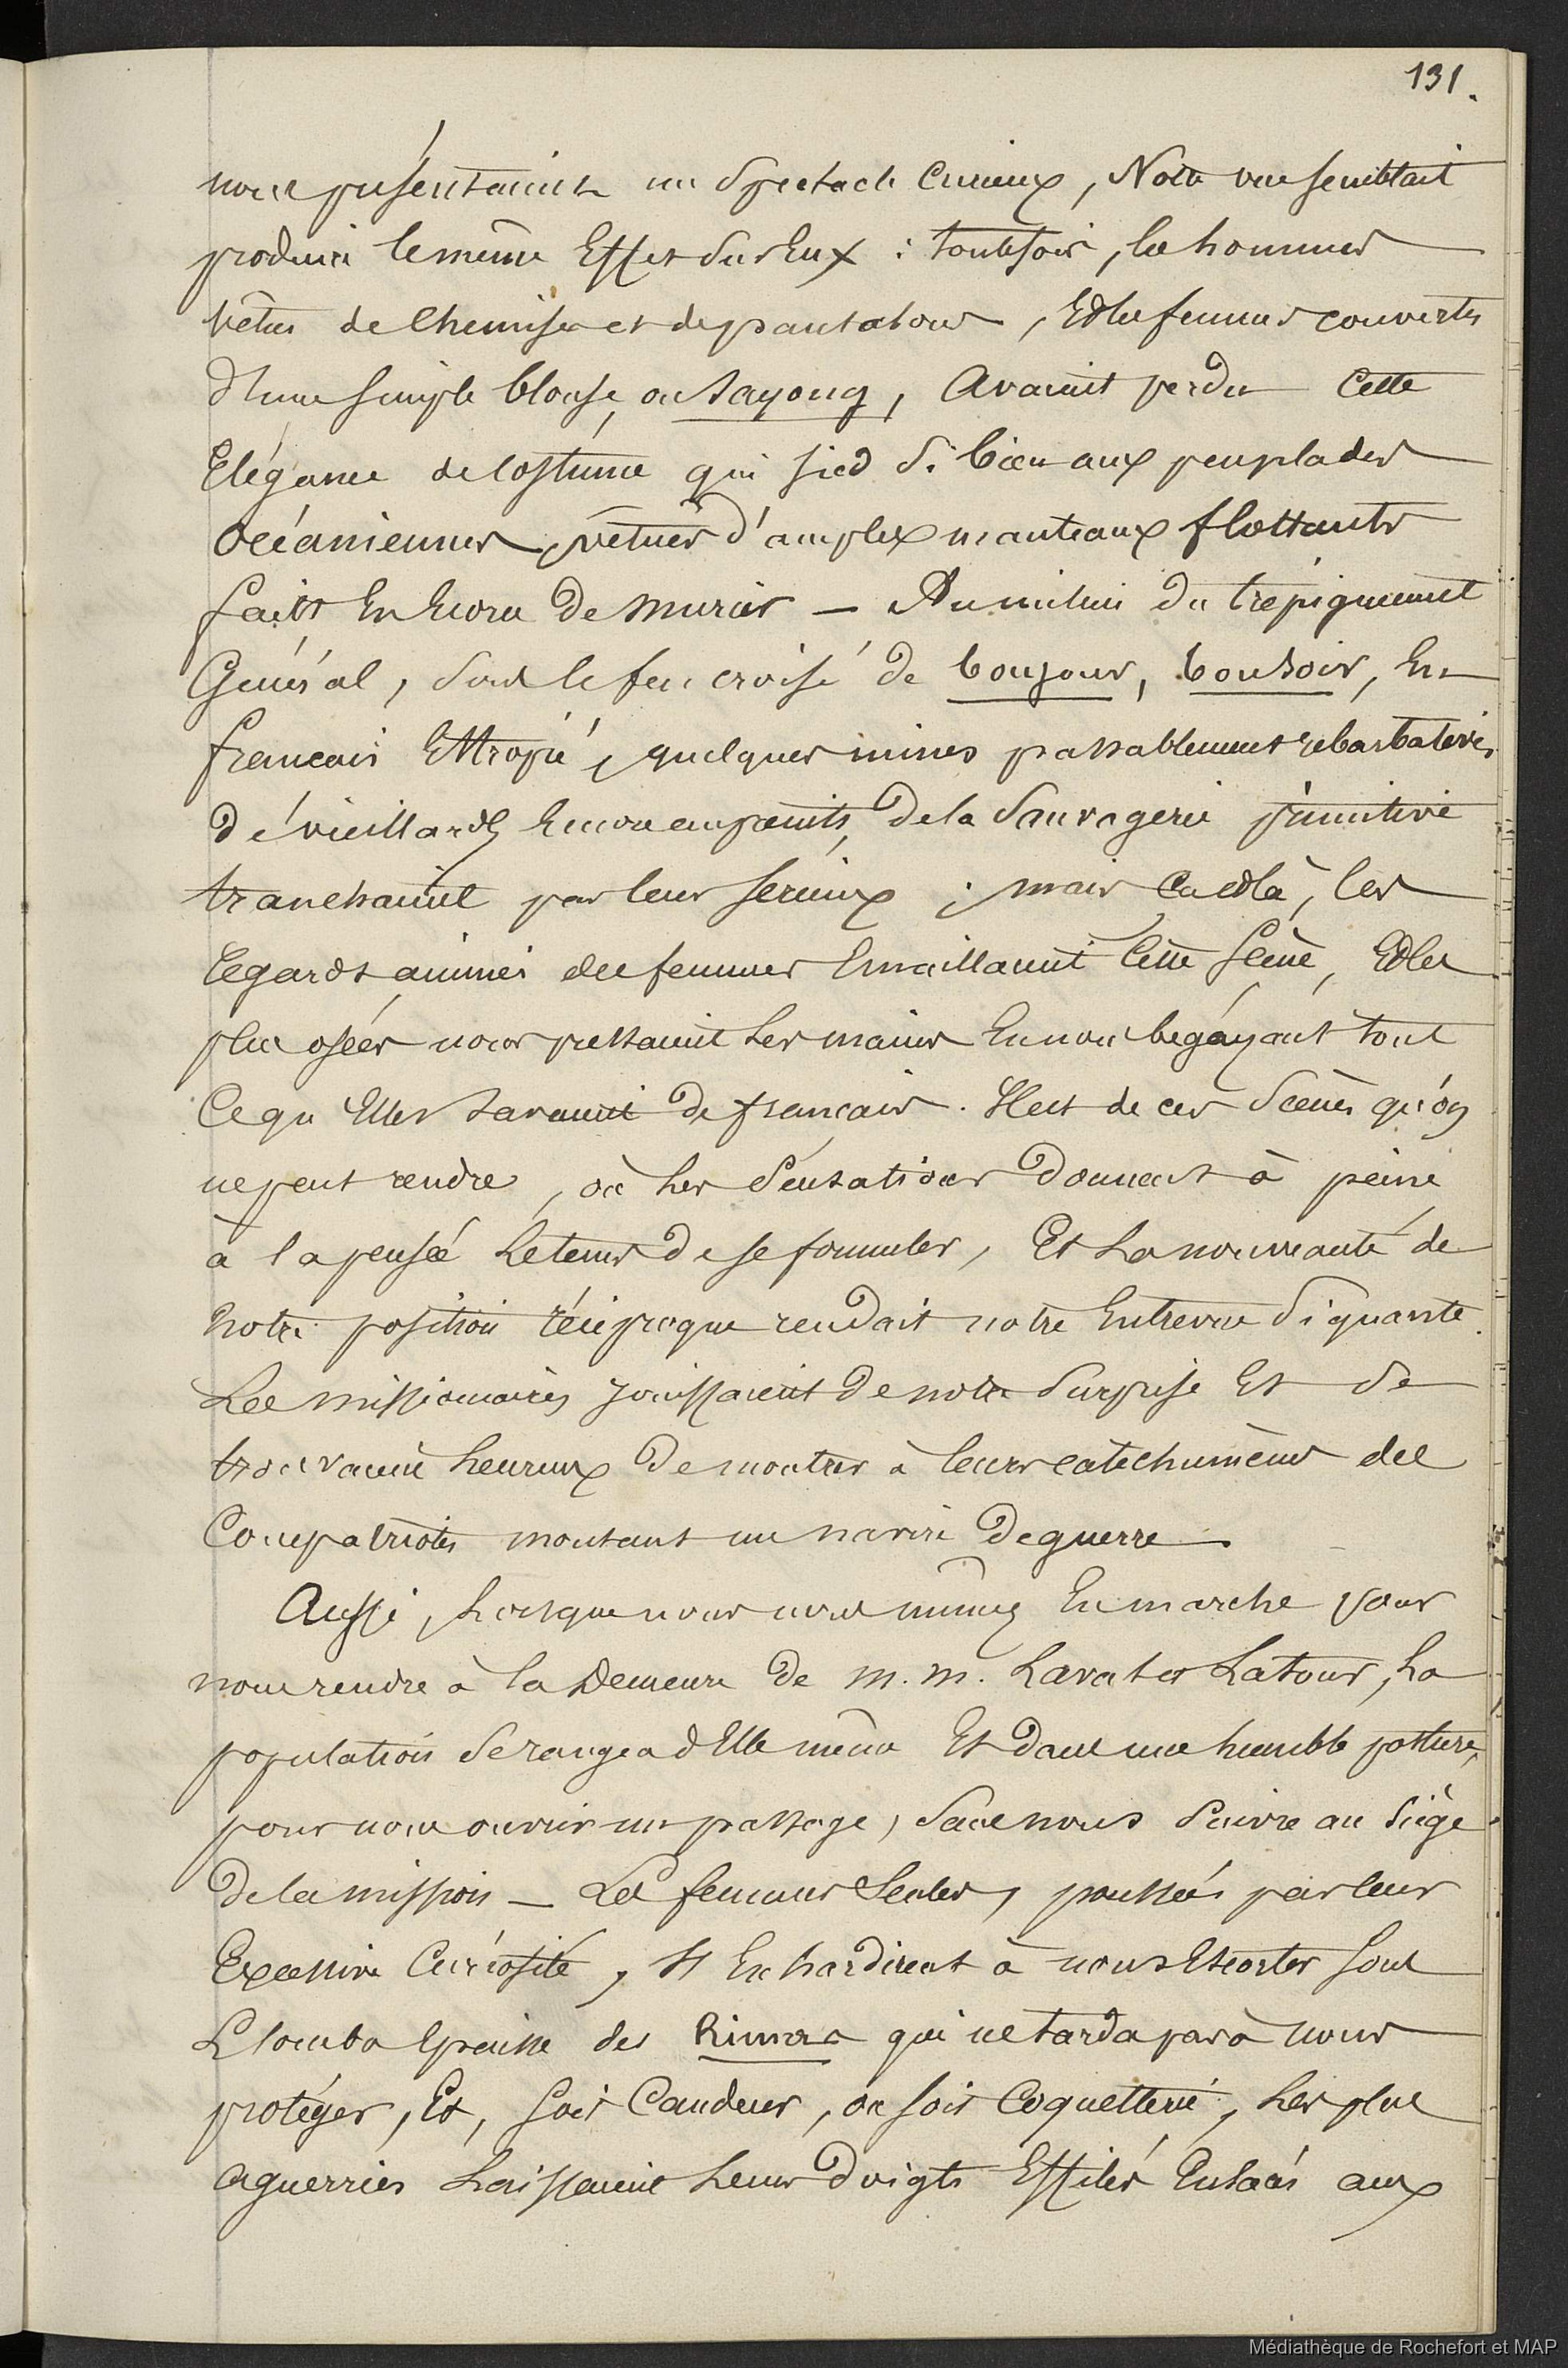 131.
nous présentaient un spectacle curieux, Notre vue semblait
produire le même Effet sur Eux : toutefois, les hommes
vêtus de Chemises et de pantalons, Et les femmes couvertes
d'une simple blouse, ou sayong, Avaient perdu Cette
Elégance de Costume qui sied si bien aux peuplades
Océaniennes, vêtues d'amples manteaux flottants
faits En Ecorce de murier — Au milieu du trépignement
Général, sous le feu croisé de bonjour, bonsoir, En
français Estropié, quelques mines passablement rebarbatives
de vieillards Encore empreints, de la Sauvagerie primitive
tranchaient par leur serieux ; mais Ca et là, les
regards animés des femmes Emaillaient Cette scène, Et les
plus osées nous pressaient Les mains En nous begáyant tout
Ce qu'Elles savaient de français. Il est de ces Scènes qu'on
ne peut rendre, où Les Sensations Donnent à peine
à la pensée Le tems de se formuler, Et La nouveauté de
Notre position réciproque rendait notre Entrevue Piquante.
Les missionnaires jouissaient de notre Surprise Et se
trouvaient heureux De montrer à leurs catéchumènes des
Compatriotes montant un navire De guerre —
Aussi, Lorsque nous nous mimes En marche pour
nous rendre à la Demeure de M. M. Lavater Latour, La
population Se rangea d'Elle même Et dans une humble posture,
pour nous ouvrir un passage, Sans nous Suivre au Siège
de la mission — Les femmes Seules, poussées par leur
Excessive Curiosité, S'Enhardirent à nous Escorter sous
L'ombre Epaisse des Rimas qui ne tarda pas à nous
protéger, Et, soit Candeur, ou soit Coquetterie, Les plus
aguerries Laissaient Leurs Doigts Effilés Enlacés aux
Médiathèque de Rochefort et MAP